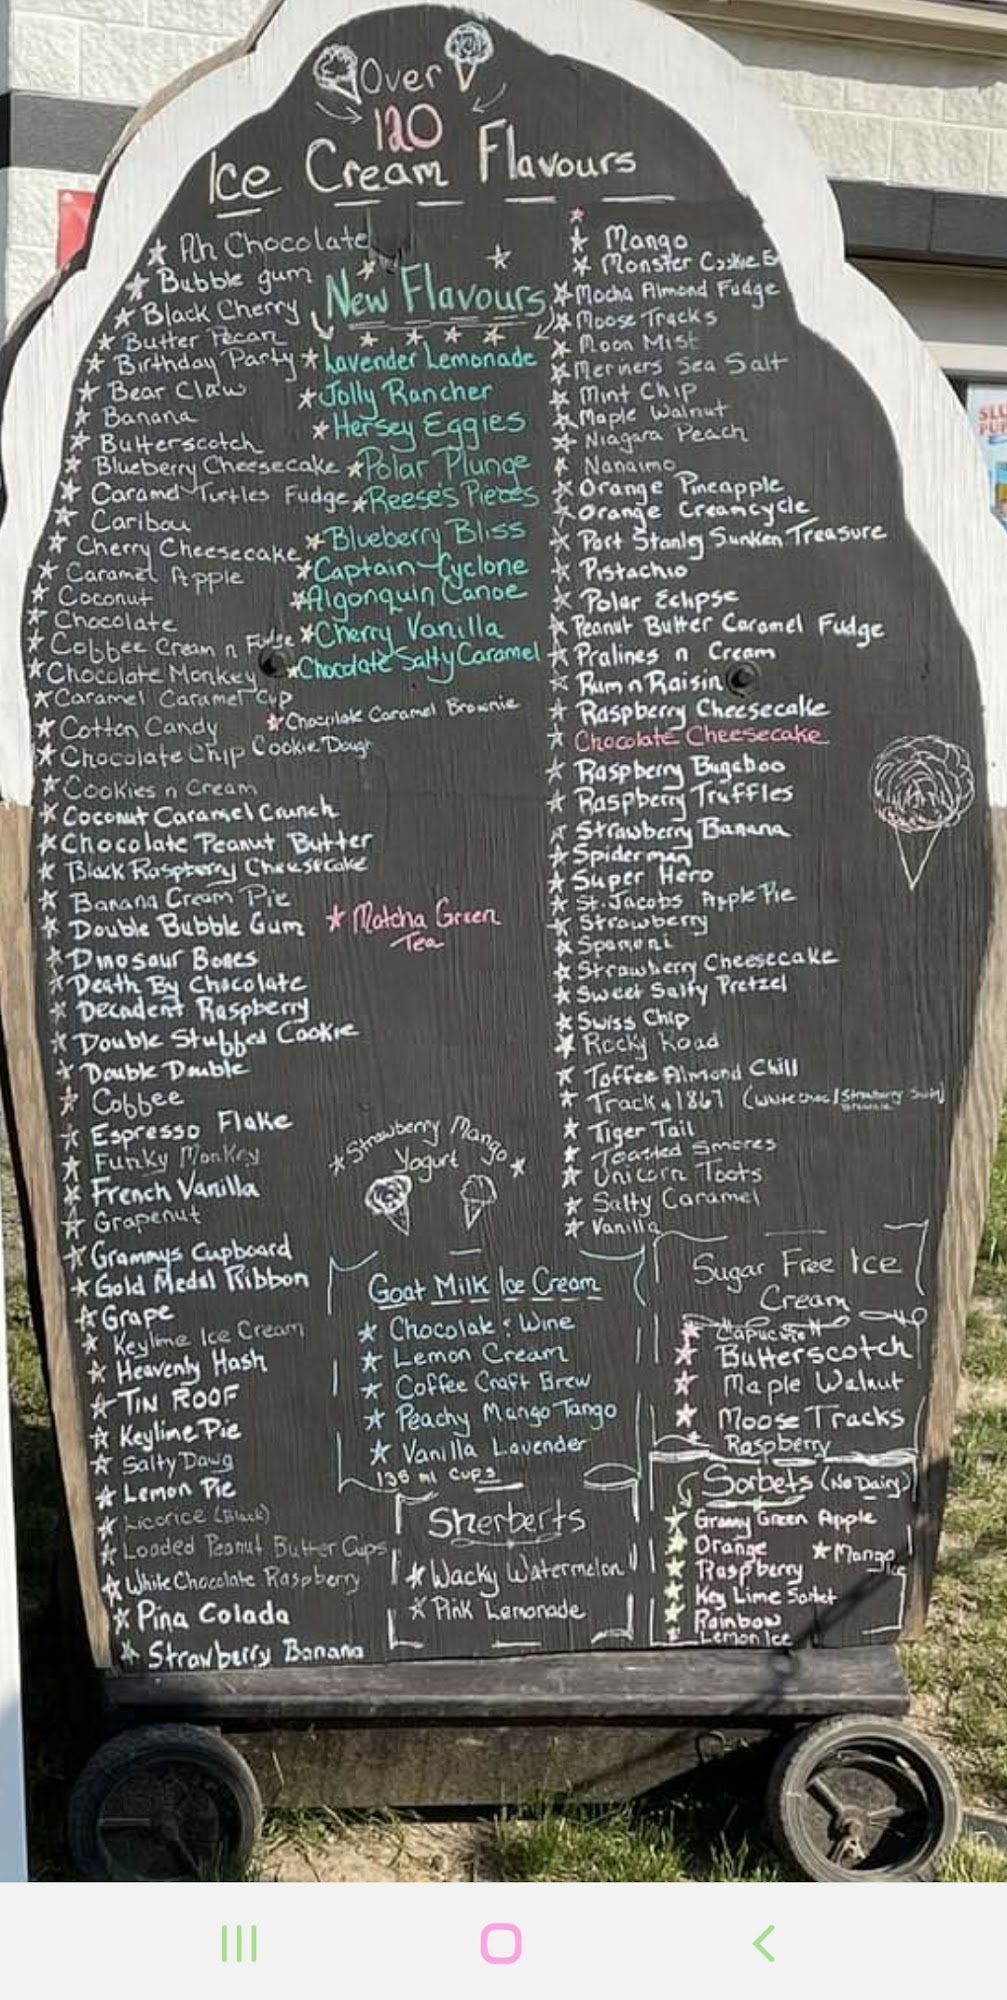 Over
120
Ice Cream Flavours
Ah Chocolate
Bubble gum
Black Cherry
Butter Pecan
Birthday Party
Bear Claw
Banana
Butterscotch
Blueberry Cheesecake
Caramel Turtles Fudge
Caribou
Cherry Cheesecake
Caramel Apple
Coconut
Chocolate
Cobbee Cream n Fudge
Chocolate Monkey
Caramel Caramel Cup
Cotton Candy
Chocolate Chip Cookie Dough
Cookies n Cream
Coconut Caramel Crunch
Chocolate Peanut Butter
Black Raspberry Cheesecake
Banana Cream Pie
Double Bubble Gum
Dinosaur Bones
Death By Chocolate
Decadent Raspberry
Double Stubbed Cookie
Double Double
Cobbee
Espresso Flake
Funky Monkey
French Vanilla
Grapenut
Grammys Cupboard
Gold Medal Ribbon
Grape
Keylime Ice Cream
Heavenly Hash
TIN ROOF
Keylime Pie
Salty Dawg
Lemon Pie
Licorice (Black)
Loaded Peanut Butter Cups
White Chocolate Raspberry
Pina Colada
Strawberry Banana
New Flavours
Lavender Lemonade
Jolly Rancher
Hersey Eggies
Polar Plunge
Reese's Pieces
Blueberry Bliss
Captain Cyclone
Algonquin Canoe
Cherry Vanilla
Chocolate Salty Caramel
Chocolate Caramel Brownie
Matcha Green
Tea
Strawberry Mango
Yogurt
Mango
Monster Cookie
Mocha Almond Fudge
Moose Tracks
Moon Mist
Meriners Sea Salt
Mint Chip
Maple Walnut
Niagara Peach
Nanaimo
Orange Pineapple
Orange Creamcycle
Port Stanley Sunken Treasure
Pistachio
Polar Eclipse
Peanut Butter Caramel Fudge
Pralines n Cream
Rum n Raisin
Raspberry Cheesecake
Chocolate Cheesecake
Raspberry Bugaboo
Raspberry Truffles
Strawberry Banana
Spiderman
Super Hero
St. Jacobs Apple Pie
Strawberry
Spomoni
Strawberry Cheesecake
Sweet Salty Pretzel
Swiss Chip
Rocky Road
Toffee Almond Chill
Tracks 1867 (White choc / Strawberry
Tiger Tail
Toasted Smores
Unicorn Toots
Salty Caramel
Vanilla
Goat Milk Ice Cream
Chocolate & Wine
Lemon Cream
Coffee Craft Brew
Peachy Mango Tango
Vanilla Lavender
135 ml Cups
Sherberts
Wacky Watermelon
Pink Lemonade
Sugar Free Ice
Cream
Butterscotch
Maple Walnut
Moose Tracks
Raspberry
Sorbets (No Dairy)
Granny Green Apple
Orange
Mango
Ice
Raspberry
Key Lime Sorbet
Rainbow
Lemon Ice